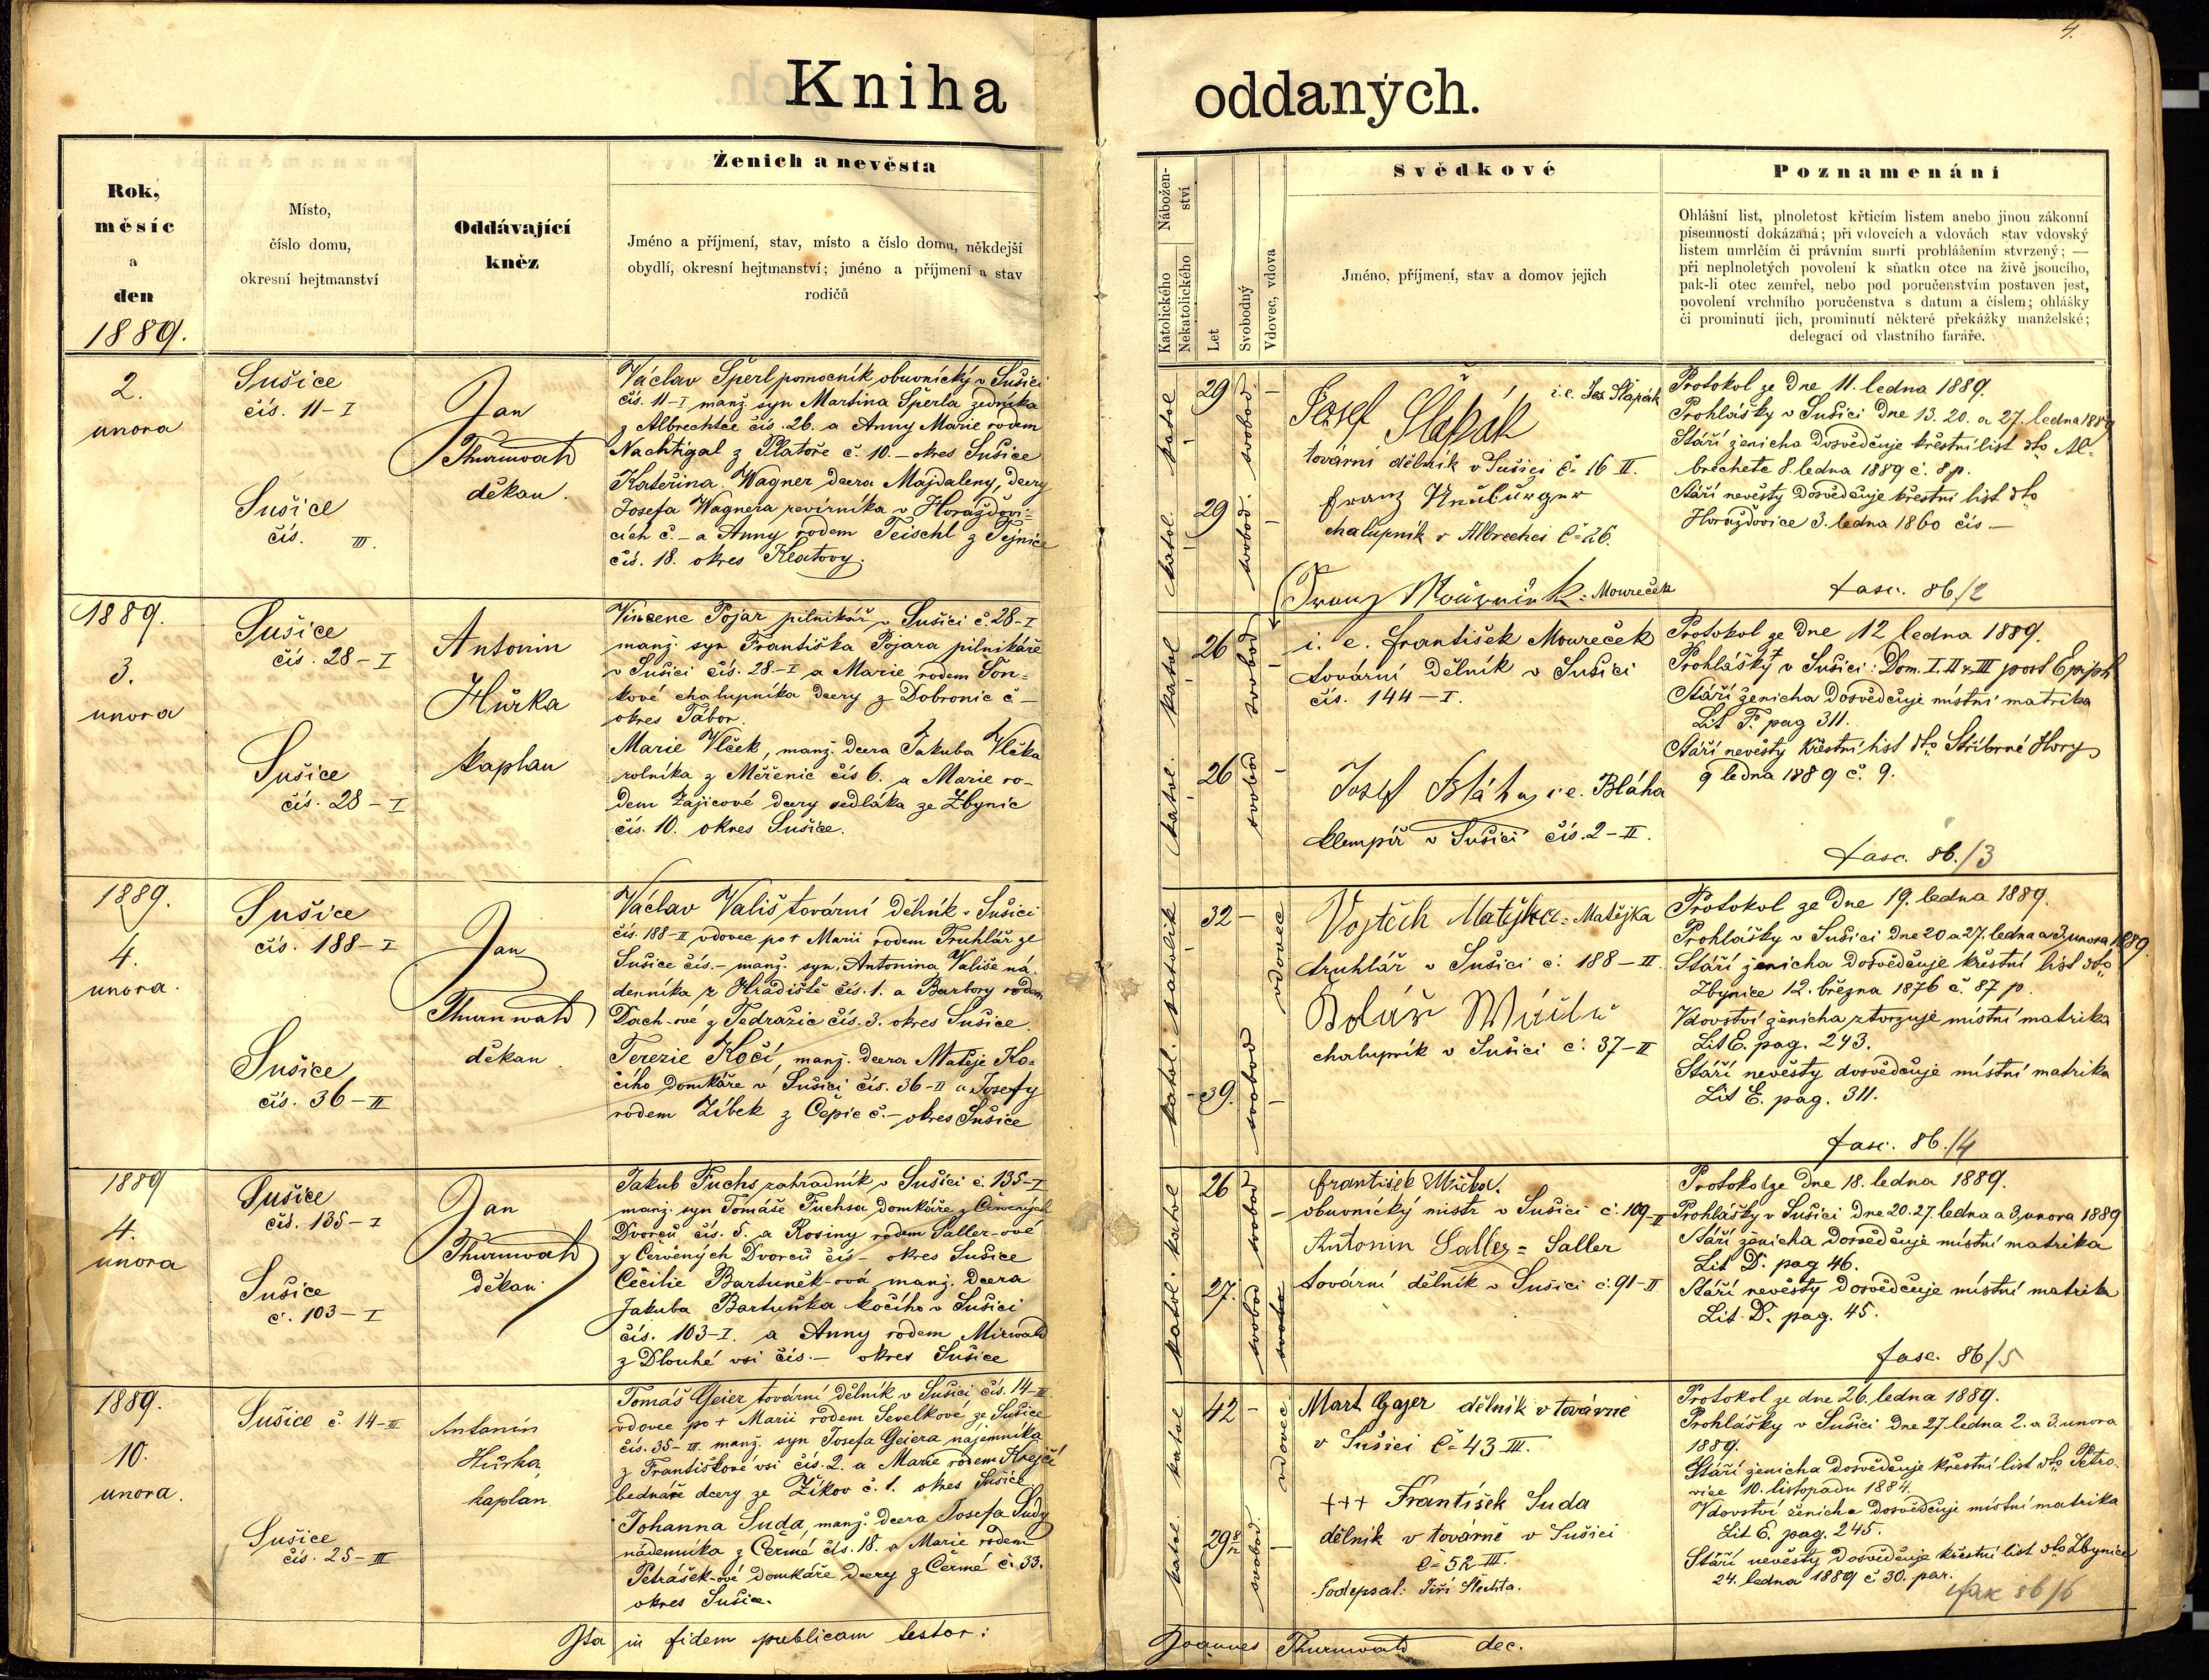 4.
Kniha oddaných.
Rok,
měsíc
a
den
1889.
Místo,
číslo domu,
okresní hejtmanství
Oddávající
kněz
Ženich a nevěsta
Jméno a příjmení, stav, místo a číslo domu, někdejší
obydlí, okresní hejtmanství; jméno a příjmení a stav
rodičů
Nábožen-
ství
Katolického
Nekatolického
Let
Svobodný
Vdovec, vdova
Svědkové
Jméno, příjmení, stav a domov jejich
Poznamenání
Ohlášní list, plnoletost křticím listem anebo jinou zákonní
písemností dokázaná; při vdovcích a vdovách stav vdovský
listem umrlčím či právním smrti prohlášením stvrzený; —
při neplnoletých povolení k sňatku otce na živě jsoucího,
pak-li otec zemřel, nebo pod poručenstvím postaven jest,
povolení vrchního poručenstva s datum a číslem; ohlášky
či prominutí jich, prominutí některé překážky manželské;
delegací od vlastního faráře.
2.
unora
Sušice
čís. 11-I
Sušice
čís. III.
Jan
Thurnwald
děkan.
Václav Šperl pomocník obuvnický v Sušici
čís. 11-I manž. syn Martina Šperla zedníka
z Albrechtce čís. 26. a Anny Marie rodem
Nachtigal z Platoře č. 10. – okres Sušice
Kateřina Wagner dcera Majdaleny, dcery
Josefa Wagnera revírníka v Horažďovi-
cích č. – a Anny rodem Teischl z Tejnice
čís. 18. okres Klatovy.
katol. 29 svobod. –
katol. 29 svobod. –
Josef Šlapák i.e. Jos. Šlapák
tovární dělník v Sušici č= 16 II.
Franz
chalupník v Albrechci č= 26.
Franz = Moureček
Protokol ze dne 11. ledna 1889.
Prohlášky v Sušici dne 13. 20. a 27. ledna 1889
Stáří ženicha dosvědčuje křestní list dto Al-
brechcte 8. ledna 1889 č. 8 p.
Stáří nevěsty dosvědčuje křestní list dto
Horažďovice 3. ledna 1860 čís –
fasc. 86/2
1889.
3.
unora
Sušice
čís. 28-I
Sušice
čís. 28-I
Antonin
Hůrka
kaplan
Vincenc Pojar pilnikář v Sušici č. 28-I
manž. syn Františka Pojara pilnikáře
v Sušici čís. 28-I a Marie rodem Ton-
kové chalupníka dcery z Dobronic č –
okres Tábor.
Marie Vlček, manž. dcera Jakuba Vlčka
rolníka z Měřenic čís 6. a Marie ro-
dem Zajicové dcery sedláka ze Zbynic
čís. 10. okres Sušice.
katol 26 svobod –
katol. 26 svobod –
i. e. František Moureček
tovární dělník v Sušici
čís. 144-I.
Josef Bláha i.e. Bláha
klempíř v Sušici čís. 2-II.
Protokol ze dne 12 ledna 1889.
Prohlášky v Sušici: Dom. I. II & III post Epiph
Stáří ženicha dosvědčuje místní matrika
Lit F. pag 311.
Stáří nevěsty křestní list dto Stříbrné Hory
9 ledna 1889 č. 9.
fasc. 86./3
1889.
4.
unora.
Sušice
čís. 188-I
Sušice
čís. 36-II
Jan
Thurnwald
děkan
Václav Vališ tovární dělník v Sušici
čís. 188-II vdovec po + Marii rodem Truhlář ze
Sušice čís. – manž. syn. Antonina Vališe ná-
denníka z Hradiště čís. 1. a Barbory rodem
Dach-ové z Tedražic čís. 3. okres Sušice.
Terezie Kočí, manž. dcera Matěje Ko-
čího domkáře v Sušici čís. 36-II a Josefy
rodem Zíbek z Čepic č. – okres Sušice
katolík 32 – vdovec
katol. 39. svobod –
Vojtěch Matějka = Matějka
truhlář v Sušici č. 188-II.
chalupník v Sušici č. 37-II
Protokol ze dne 19. ledna 1889.
Prohlášky v Sušici dne 20 a 27. ledna a 3. unora 1889.
Stáří ženicha dosvědčuje křestní list dto
Zbynice 12. března 1876 č. 87 p.
Vdovství ženicha ztvrzuje místní matrika
Lit E. pag. 243.
Stáří nevěsty dosvědčuje místní matrika
Lit E. pag. 311.
fasc. 86./4
1889
4.
unora
Sušice
čís. 135-I
Sušice
č. 103-I
Jan
Thurnwald
děkan
Jakub Fuchs zahradník v Sušici č. 135-I
manž. syn Tomáše Fuchsa domkáře z Červených
Dvorců čís. 5. a Rosiny rodem Saller-ové
z Červených Dvorců čís – okres Sušice
Cěcilie Bartuněk-ová manž. dcera
Jakuba Bartuňka kočího v Sušici
čís. 103-I. a Anny rodem Mirwald
z Dlouhé vsi čís. – okres Sušice
katol 26 svobod –
katol. 27. svobod
František Mička.
obuvnický mistr v Sušici č. 109-II
Antonin Saller = Saller
tovární dělník v Sušici č. 91-II
Protokol ze dne 18. ledna 1889.
Prohlášky v Sušici dne 20. 27. ledna a 3. unora 1889
Stáří ženicha dosvědčuje místní matrika
Lit D. pag 46.
Stáří nevěsty dosvědčuje místní matrika
Lit D. pag. 45.
fasc. 86/5
1889.
10.
unora.
Sušice č. 14-III
Sušice
čís. 25-III
Antonín
Hůrka,
kaplan
Tomáš Geier tovární dělník v Sušici čís. 14-III
vdovec po + Marii rodem Sevelkové ze Sušice
čís. 35-III. manž. syn Josefa Geiera nájemníka
z Františkové vsi čís. 2. a Marie rodem Krejčí
bednáře dcery ze Žikov č. 1. okres Sušice
Johanna Suda, manž. dcera Josefa Sudy
nádenníka z Čermé čís. 18. a Marie rodem
Petrášek-ové domkáře dcery z Čermé č. 33.
okres Sušice.
katol 42 – vdovec
katol. 29 8/12 svobod. –
Mart Gajer dělník v továrně
v Sušici č= 43 III.
+++ František Suda
dělník v továrně v Sušici
č= 52 III.
Podepsal: Jiří
Protokol ze dne 26. ledna 1889.
Prohlášky v Sušici dne 27. ledna 2. a 3. unora
1889.
Stáří ženicha dosvědčuje křestní list dto Petro-
vice 10. listopadu 1884.
Vdovství ženicha dosvědčuje místní matrika
Lit E. pag. 245.
Stáří nevěsty dosvědčuje křestní list dto Zbynice
24. ledna 1889 č 30. par.
fasc 86/6
Ita in fidem publicam testor: Joannes Thurnwald dec.